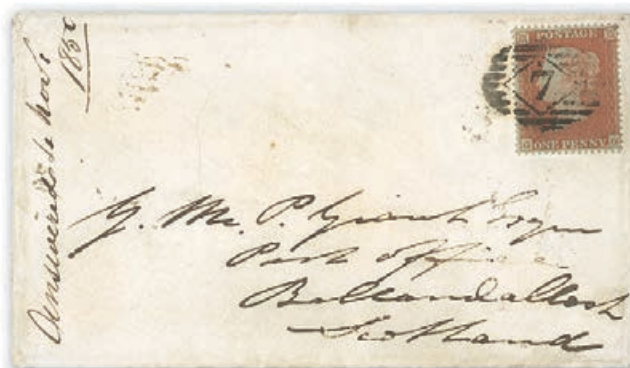 Answered 16 Nov.
1850
POSTAGE
7
ONE PENNY
G. Mc. P. Grant Esqre
Post office
Ballandalloch
Scotland